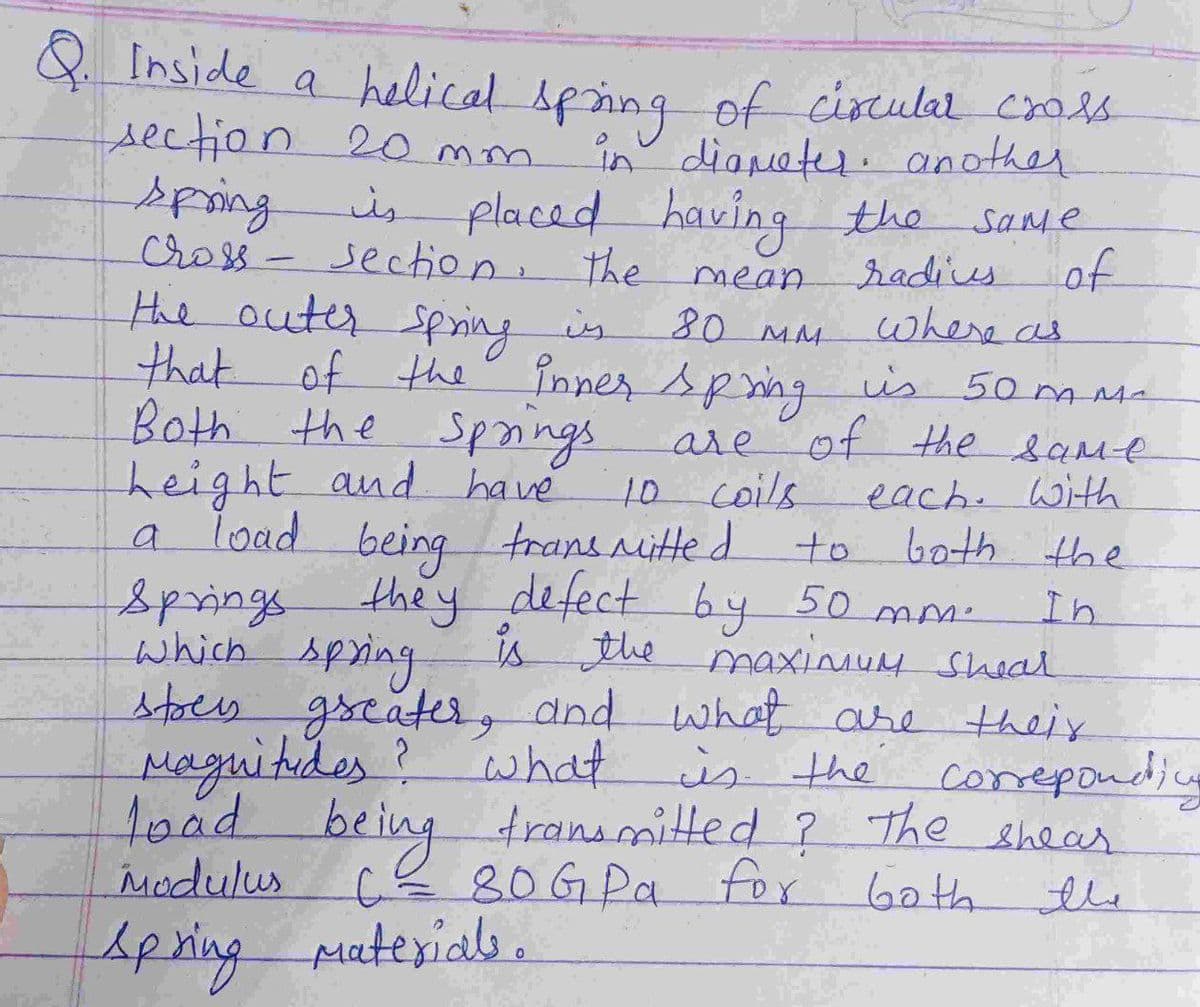 Q. Inside a helical spring of circular cross
section 20 mm in diameter. another
spring is placed having the same
cross - section. The mean radius of
the outer spring is 80 mm where as
that of the inner spring is 50 mm.
Both the springs are of the same
height and have 10 coils each. With
a load being transmitted to both the
springs they defect by 50 mm. In
which spring is the maximum shear
stress greater, and what are their
magnitudes? what is the correponding
load being transmitted? The shear
modulus C = 80 GPa for both the
spring materials.